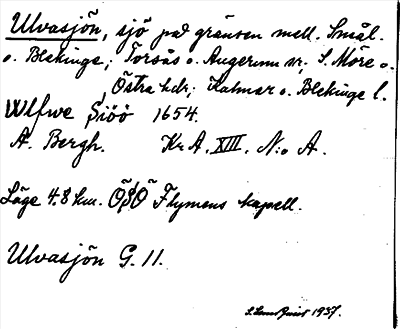 Ulvasjön, sjö på gränsen mell. Smål.
o. Blekinge; Torsås o. Augerum sn; S. Möre o.
Östra hdr; Kalmar o. Blekinge l.
Ulfwe Siöö 1654.
A. Bergh. Kr A. XIII. N:o A.
Läge 4.8 km. ÖSÖ Flymens kapell.
Ulvasjön G. 11.
S. Landqvist 1937.